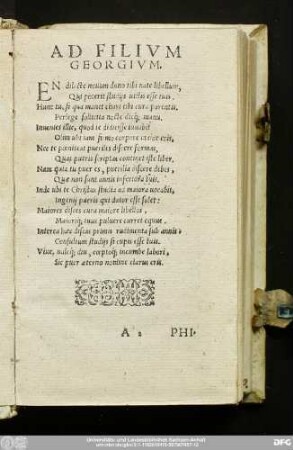 AD FILIVM
GEORGIVM.
EN dilecte meum dono tibi nate libellum,
Qui poterit studijs utilis esse tuis.
Hunc tu, si qua manet charę tibi cura parentis,
Perlege sollicita nocte dieq́; manu.
Inuenies illic, quod te didicisse iuuabit
Olim ubi iam firmo corpore maior eris.
Nec te pœniteat pueriles discere formas,
Quas patris scriptas continet iste liber.
Nam quia tu puer es, puerilia discere debes,
Quæ non sunt annis inferiora tuis.
Inde ubi te Christus studia ad maiora uocabit,
Ingenij patris qui dator esse solet:
Maiores disces cura maiore libellos,
Maioriq́; tuus puluere curret equus.
Interea hæc discas primis rudimenta sub annis,
Consultum studijs si cupis esse tuis.
Viue, uale diu, cœptoq́; incumbe labori,
Sic puer æterno nomine clarus eris.
A 2 PHI-
Universitäts- und Landesbibliothek Sachsen-Anhalt
DFG